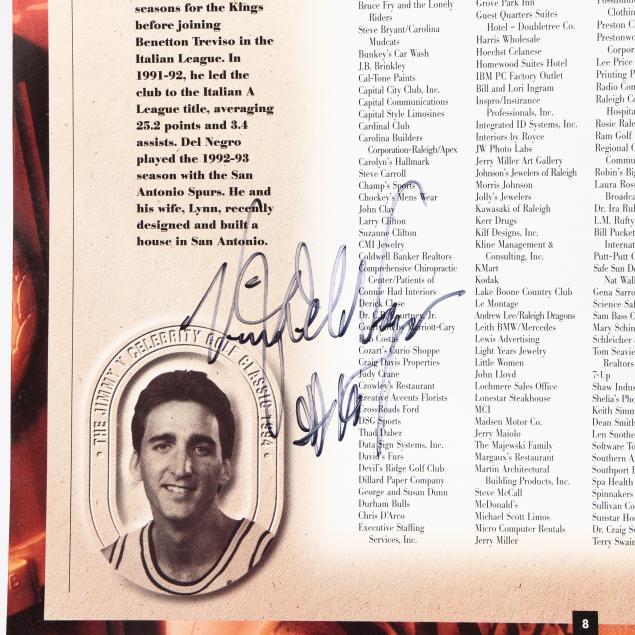 seasons for the Kings
before joining
Benetton Treviso in the
Italian League. In
1991-92, he led the
club to the Italian A
League title, averaging
25.2 points and 3.4
assists. Del Negro
played the 1992-93
season with the San
Antonio Spurs. He and
his wife, Lynn, recently
designed and built a
house in San Antonio.
THE JIMMY V CELEBRITY GOLF CLASSIC 1994
Bruce Fry and the Lonely
Riders
Steve Bryant/Carolina
Mudcats
Bunkey's Car Wash
J.B. Brinkley
Cal-Tone Paints
Capital City Club, Inc.
Capital Communications
Capital Style Limosines
Cardinal Club
Carolina Builders
Corporation-Raleigh/Apex
Carolyn's Hallmark
Steve Carroll
Champ's Sports
Chockey's Mens Wear
John Clay
Larry Clifton
Suzanne Clifton
CMI Jewelry
Coldwell Banker Realtors
Comprehensive Chiropractic
Center/Patients of
Connie Had Interiors
Derick Close
Dr. Courtney, Jr.
Courtyard by Marriott-Cary
Costas
Cozart's Curio Shoppe
Craig Davis Properties
Judy Crane
Crowley's Restaurant
Creative Accents Florists
CrossRoads Ford
DSG Sports
Thad Daber
Data Sign Systems, Inc.
David's Furs
Devil's Ridge Golf Club
Dillard Paper Company
George and Susan Dunn
Durham Bulls
Chris D'Arco
Executive Staffing
Services, Inc.
Grove Park Inn
Guest Quarters Suites
Hotel – Doubletree Co.
Harris Wholesale
Hoechst Celanese
Homewood Suites Hotel
IBM PC Factory Outlet
Bill and Lori Ingram
Inspro/Insurance
Professionals, Inc.
Integrated ID Systems, Inc.
Interiors by Royce
JW Photo Labs
Jerry Miller Art Gallery
Johnson's Jewelers of Raleigh
Morris Johnson
Jolly's Jewelers
Kawasaki of Raleigh
Kerr Drugs
Kilf Designs, Inc.
Kline Management &
Consulting, Inc.
KMart
Kodak
Lake Boone Country Club
Le Montage
Andrew Lee/Raleigh Dragons
Leith BMW/Mercedes
Lewis Advertising
Light Years Jewelry
Little Women
John Lloyd
Lochmere Sales Office
Lonestar Steakhouse
MCI
Madsen Motor Co.
Jerry Maiolo
The Majewski Family
Margaux's Restaurant
Martin Architectural
Building Products, Inc.
Steve McCall
McDonald's
Michael Scott Limos
Micro Computer Rentals
Jerry Miller
Clothin
Preston C
Prestonwo
Corpor
Lee Price
Printing P
Radio Con
Raleigh Co
Hospita
Rosie Rale
Ram Golf
Regional C
Commu
Robin's Big
Laura Ross
Broadca
Dr. Ira Ru
L.M. Rufty
Bill Pucket
Internat
Putt-Putt C
Safe Sun D
Nat Wall
Gena Sarro
Science Saf
Sam Bass C
Mary Schin
Schleicher
Tom Seavie
Realtors
7-Up
Shaw Indus
Shelia's Pho
Keith Simm
Dean Smith
Len Snothe
Software To
Southern A
Southport F
Spa Health
Spinnakers
Sullivan Co
Sunstar Ho
Dr. Craig S
Terry Swain
8